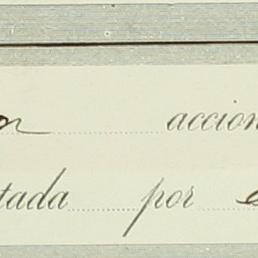 accion
tada por